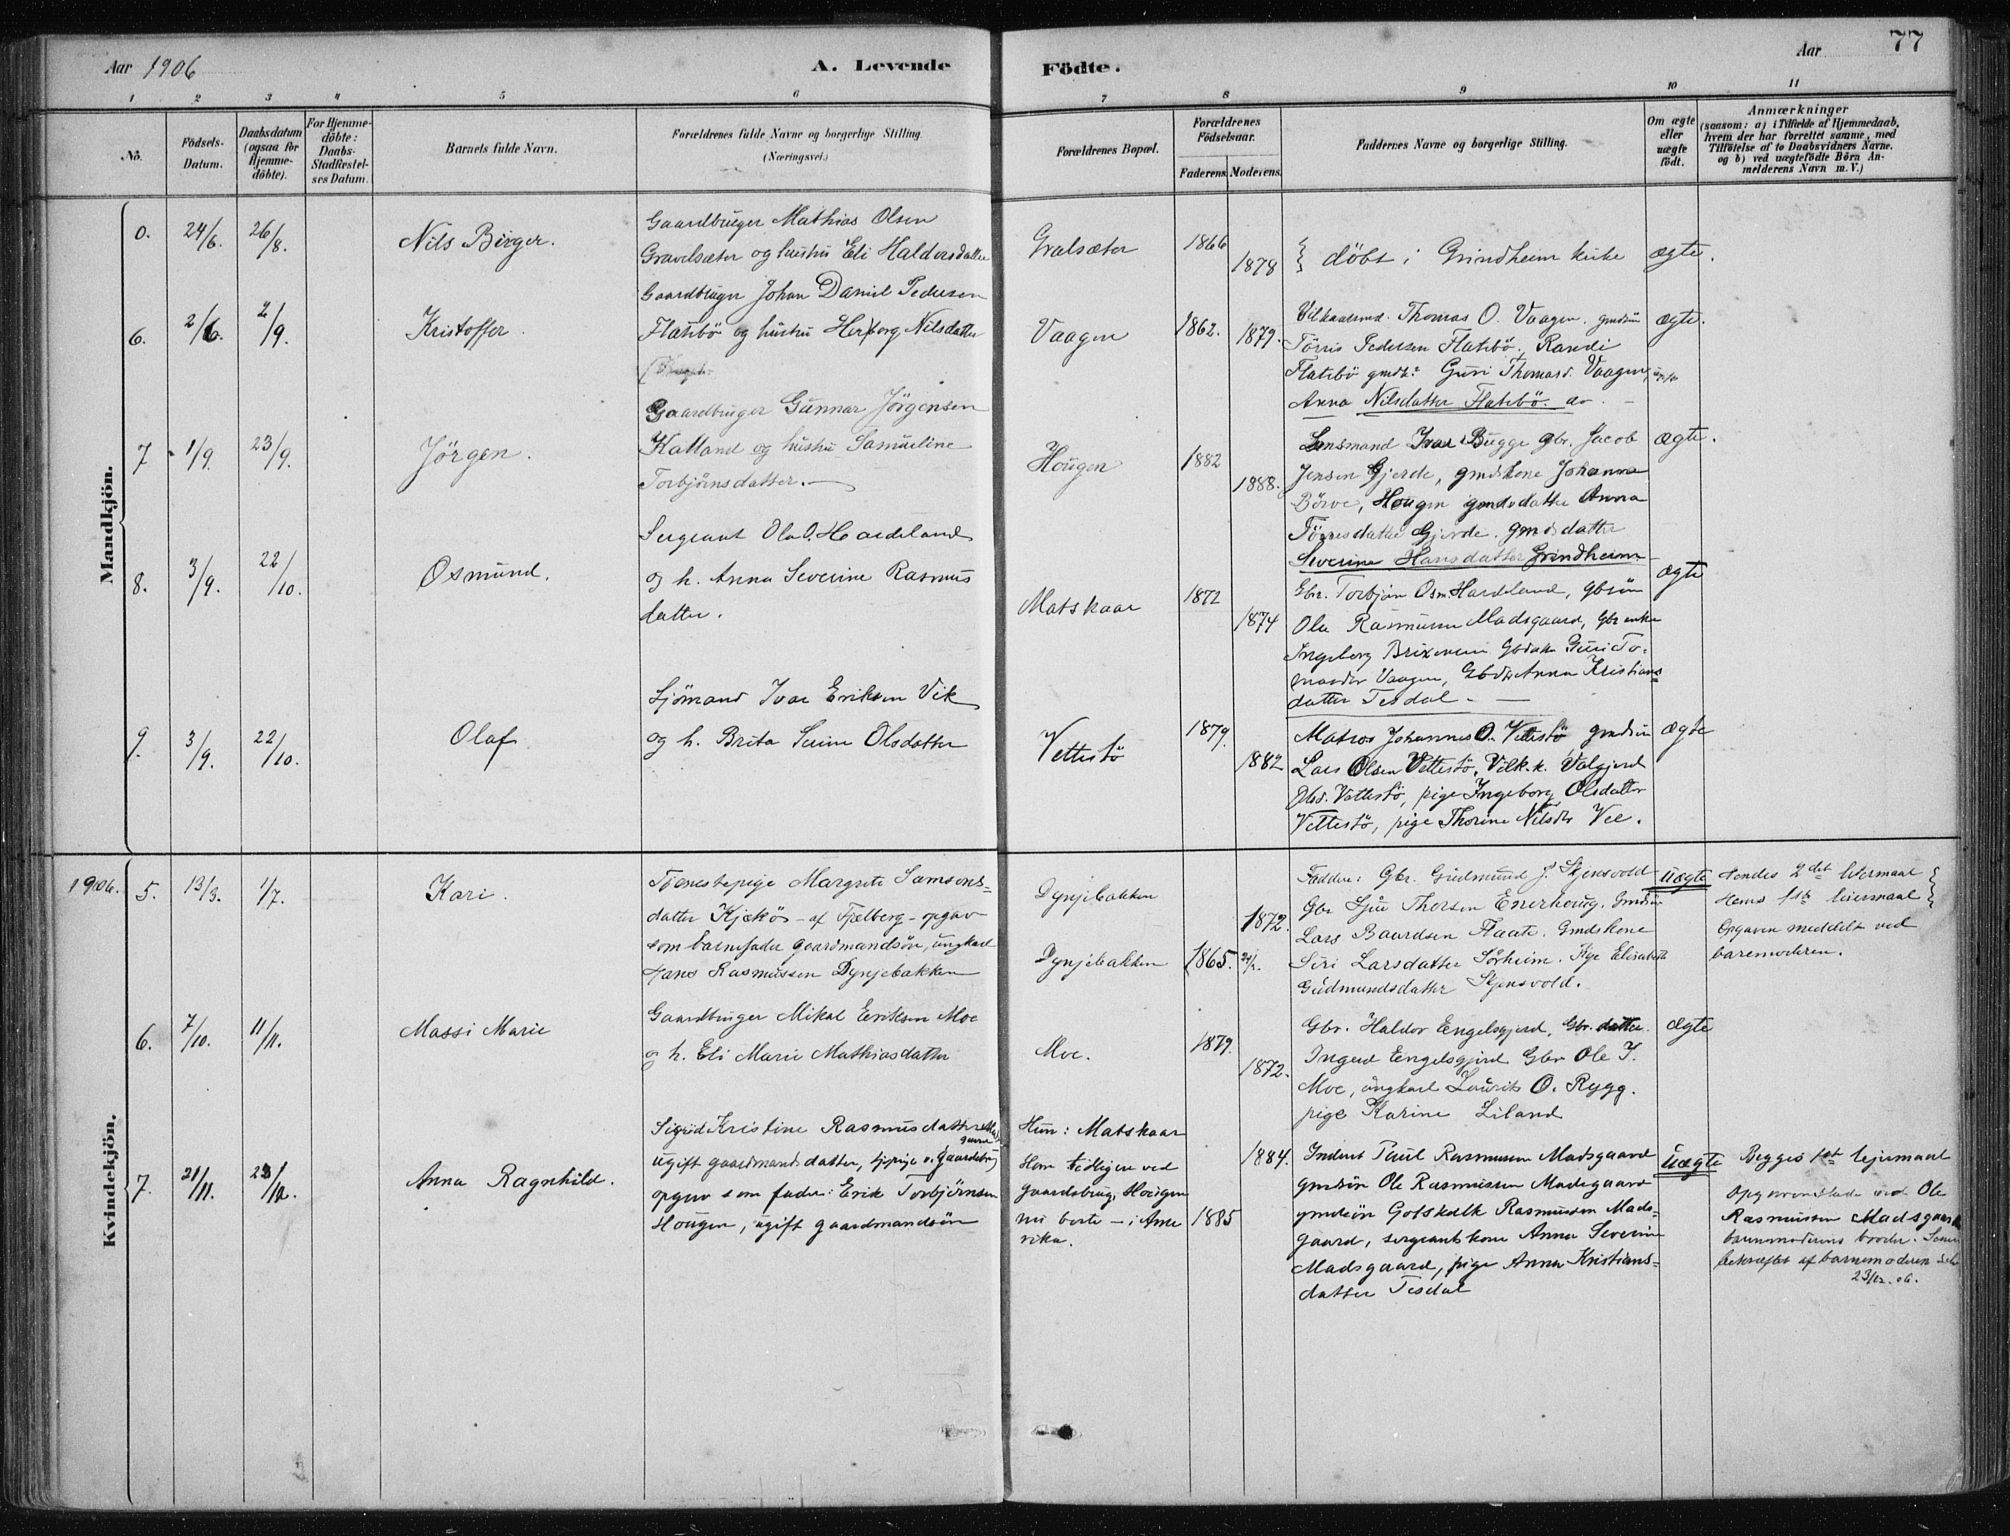 Aar 1906
A. Levende
Födte.
Aar
77
1 2 3 4 5 6 7 8 9 10 11
No.
Födsels-
Datum.
Daabsdatum
(ogsaa for
Hjemme-
döbte).
For Hjemme-
döbte:
Daabs-
Stadfæstel-
ses Datum.
Barnets fulde Navn.
Forældrenes fulde Navne og borgerlige Stilling.
(Næringsvei.)
Forældrenes Bopæl.
Forældrenes
Födselsaar.
Faderens. Moderens.
Faddernes Navne og borgerlige Stilling.
Om ægte
eller
uægte
födt.
Anmærkninger
(saasom: a) i Tilfælde af Hjemmedaab,
hvem der har forrettet samme, med
Tilföielse af to Daabsvidners Navne.
og b) ved uægtefödte Börn An-
melderens Navn m. V.)
Mandkjön.
0. 24/6. 26/8. Nils Birger.
Gaardbruger Mathias Olsen
Gravelsæter og hustru Eli Haldorsdatter
Gralsæter 1866 1878
} döbt i Grindheim kirke
ægte.
6. 2/6. 2/9. Kristoffer.
Gaardbruger Johan Daniel Pedersen
Flatebö og hustru Herborg Nilsdatter
Vaagen 1862. 1879.
Vilkaarsmd. Thomas O. Vaagen. gmdsön
Törris Pedersen Flatebö, Randi
Flatebö gmdk. Guri Thomasd. Vaagen,
Anna Nilsdatter Flatebö. do. -
ægte.
7 1/9. 23/9. Jörgen.
Gaardbruger Gunnar Jörgensen
Kalland og hustru Samueline
Torbjörnsdatter. -
Hougen 1882 1888.
Lensmand Ivar Bugge gbr. Jacob
Jensen Gjerde, gmdskone Johanna
Börve, Hougen gmdsdatter Anna
Törresdatter Gjerde. gmdsdatter
Severine Hansdatter Grindheim
ægte.
8. 3/9. 22/10. Osmund.
Sergeant Ola O. Hardeland
og h. Anna Severine Rasmus
datter.
Matskaar 1872 1874
Gbr. Torbjörn Osm. Hardeland, gbrsön
Ole Rasmussen Madsgaard, Gbr enke
Ingeborg Brixensen Gbdatt. Guri To-
masdtr Vaagen, Gbdtr Anna Kristians=
datter Tesdal. -
ægte
9. 3/9. 22/10. Olaf
Sjömand Ivar Eriksen Vik
og h. Brita Serine Olsdatter
Vettestö 1879. 1882
Matros Johannes O. Vettestö gmdsön
Lars Olsen Vettestö, Vilk.k. Valgjerd
Olsd. Vettestö, pige Ingeborg Olsdatter
Vettestö, pige Thorine Nilsdtr Vee.
ægte
Kvindekjön.
1906. 5. 13/3. 1/7. Kari.
Tjenestepige Margrete Samsons-
datter Kjækös - af Fjelberg - opgav
som barnefader gaardmandsön, ungkarl
Hans Rasmussen Dynjebakken
Dynjebakken 1872.
Dynjebakken 1865. 24/2.
Faddere: Gbr. Gudmund J. Skjensvold
Gbr Sjur Thorsen Enerhoug. Gmdsön
Lars Baardsen Flaate. Gmdskone
Siri Larsdatter Sörheim. Pige Elisabeth
Gudmundsdatter Skjensvold.
uægte
Hendes 2det leiermaal
Hans 1ste leiermaal
Opgaven meddelt ved
barnemoderen.
6. 7/10. 11/11. Massi Marie
Gaardbruger Mikal Eriksen Moe
og h. Eli Marie Mathiasdatter
Moe. 1879. 1872.
Gbr. Haldor Engelsgjerd, Gbr. datter
Ingerd Engelsgjerd Gbr Ole I.
Moe, ungkarl Laurits O. Rygg.
pige Karine Liland
ægte
7. 21/11. 23/12. Anna Ragnhild.
Sigrid Kristine Rasmusdatter Mads
gaard
ugift gaardmandsdatter, tjenpige v. gaardsbrug
opgav som fader: Erik Torbjörnsen
Hougen, ugift gaardmandsön
Hun: Matskaar 1884.
Han tidligere ved
gaardsbrug, Hougen
nu borte - i Ame 1885
rika.
Inderst Paul Rasmussen Madsgaard
gmdsön Ole Rasmussen Madsgaard
gmdsön Gotskalk Rasmussen Mads-
gaard, sergeantkone Anna Severine
Madsgaard, pige Anna Kristians=
datter Tesdal
uægte
Begges 1ste lejermaal
Opgaven skede ved Ole
Rasmussen Madsgaard
barnmoderens broder. Senere
bekræftet af barnemoderen selv
23/12.06.